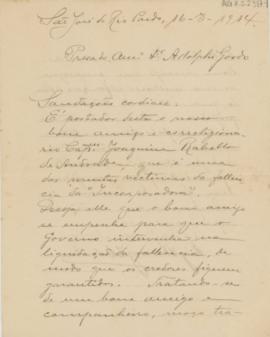 São José do Rio Pardo, 16-3-1914.
Prezado Amº Dr Adolpho Gordo
Saudações cordiaes.
É portador desta o nosso
bom amigo e correligiona-
rio Capm. Joaquim Rabello
de Andrade que é uma
das muitas victimas da fallen-
cia da "Incorporadora".
Deseja elle que o bom amigo
se empenhe para que o
Governo intervenha na
liquidação da fallencia, de
modo que os credores fiquem
garantidos. Tratando-se
de um bom amigo e
companheiro, moço tra-